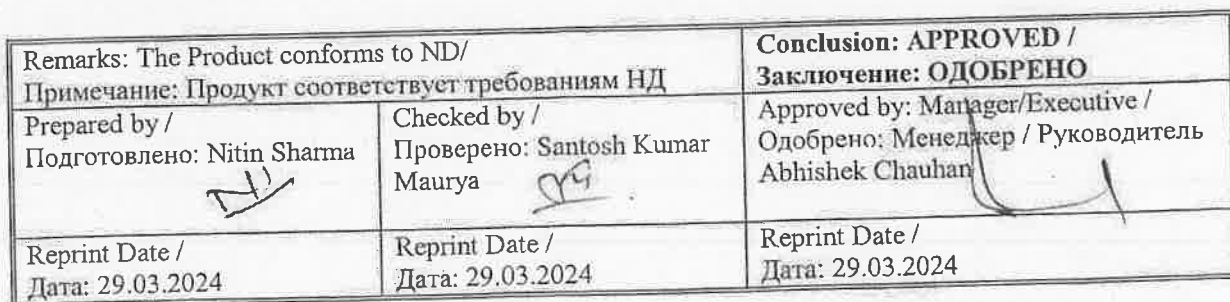 Remarks: The Product conforms to ND/
Примечание: Продукт соответствует требованиям НД
Conclusion: APPROVED /
Заключение: ОДОБРЕНО
Prepared by /
Подготовлено: Nitin Sharma
Checked by /
Проверено: Santosh Kumar
Maurya
Approved by: Manager/Executive /
Одобрено: Менеджер / Руководитель
Abhishek Chauhan
Reprint Date /
Дата: 29.03.2024
Reprint Date /
Дата: 29.03.2024
Reprint Date /
Дата: 29.03.2024